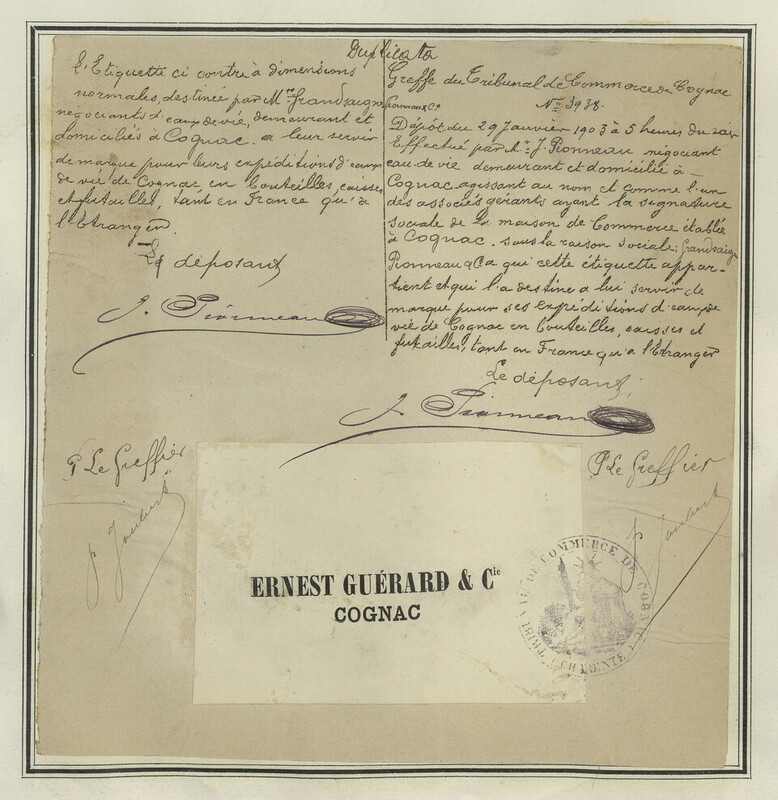 Duplicata
L'Etiquette ci contre à dimensions
normales, destinée par Mrs Grandsaigne
Pionneau & Co
negociants d'eaux de vie, demeurant et
domiciliés à Cognac. a leur servir
de marque pour leurs expéditions d'eaux
de vie de Cognac, en bouteilles, caisses
et futailles, tant en France qu'à
l'Etranger.
Le déposant
J. Pionneau
Greffe du Tribunal de Commerce de Cognac
No 3938.
Dépôt du 29 Janvier 1903 à 5 heures du soir
Effectué par Mr J. Pionneau négociant
eau de vie demeurant et domicilié à
Cognac agissant au nom et comme l'un
des associés gérants ayant la signature
sociale de la maison de Commerce établie
à Cognac. sous la raison sociale: Grandsaigne
Pionneau & Ca qui cette étiquette appar-
tient et qui l'a destine a lui servir de
marque pour ses expéditions d'eaux de
vie de Cognac en bouteilles, caisses et
futailles, tant en France qu'a l'Etranger
Le déposant,
J. Pionneau
P Le Greffier
P Le Greffier
J. Joubert
J. Joubert
ERNEST GUÉRARD & Cie
COGNAC
TRIBUNAL DE COMMERCE DE COGNAC
CHARENTE